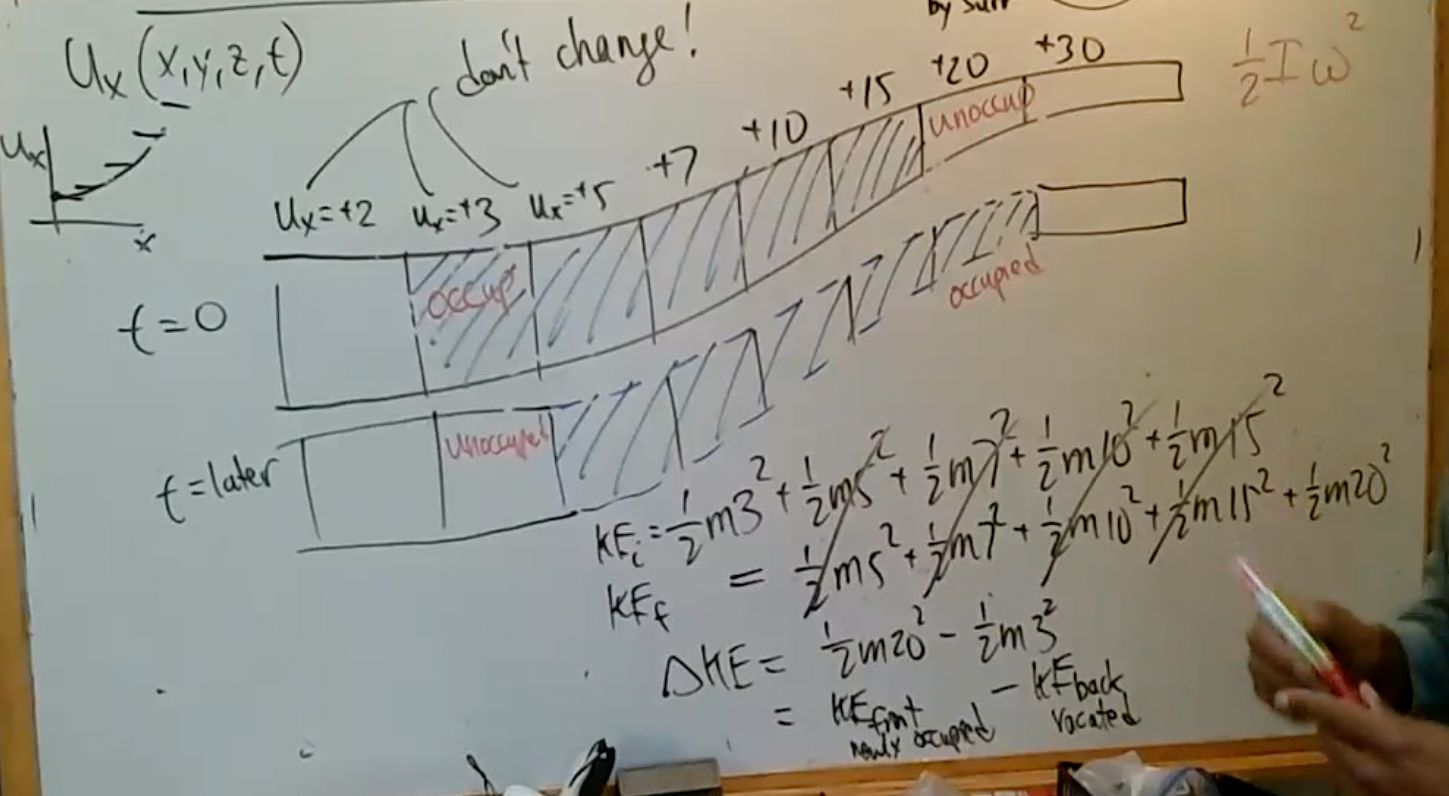 by Surr
Uₓ(x,y,z,t)
don't change!
½Iω²
Uₓ
x
Uₓ=+2 Uₓ=+3 Uₓ=+5 +7 +10 +15 +20 +30
t=0
occup
unoccup
t=later
unoccupied
occupied
KEᵢ = ½m3² + ½m5² + ½m7² + ½m10² + ½m15²
KE_f = ½m5² + ½m7² + ½m10² + ½m15² + ½m20²
ΔKE = ½m20² - ½m3²
= KE front newly occupied - KE back vacated